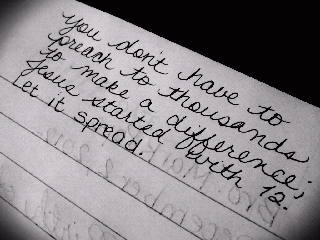 you don't have to
preach to thousands
to make a difference;
Jesus started with 12.
let it spread.